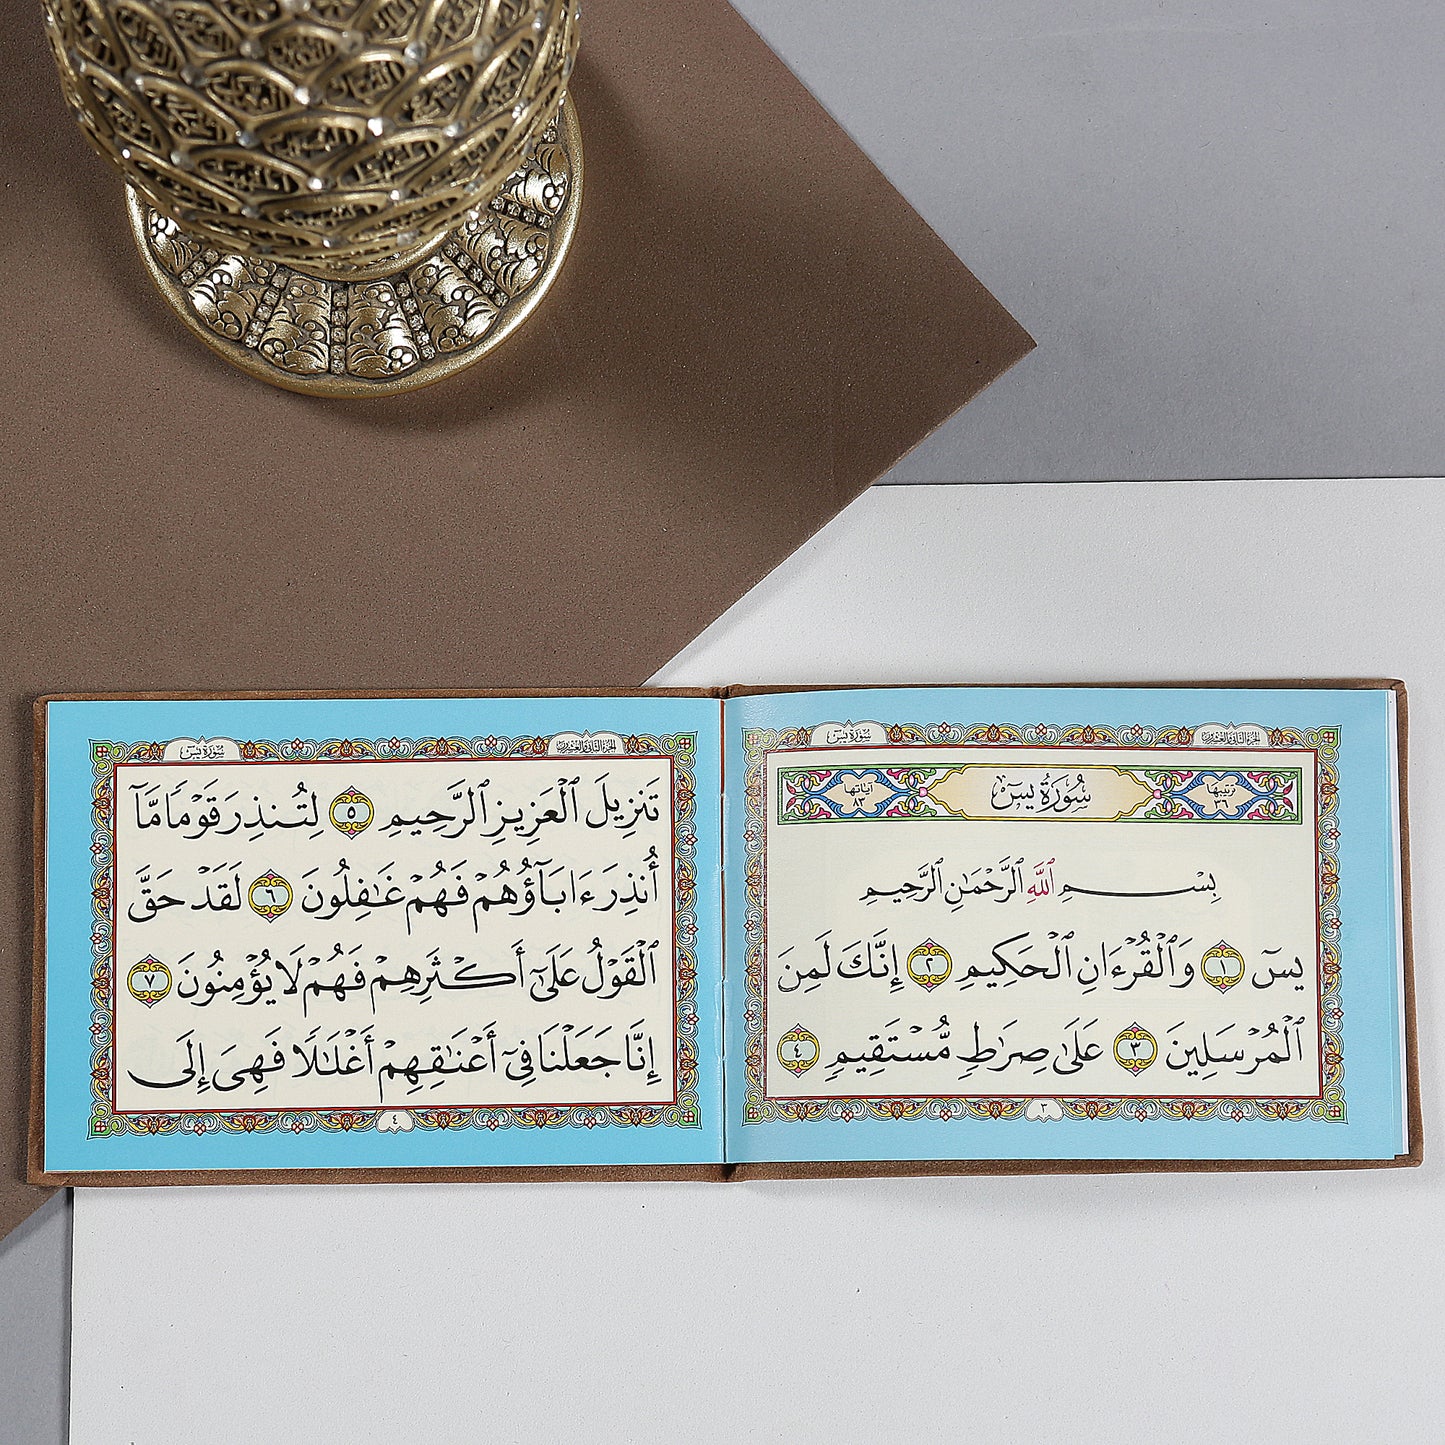 سُورَةُ يسٓ
الجزء الثاني والعشرون
ترتيبها ٣٦
سُورَةُ يسٓ
آياتها ٨٣
بِسْمِ ٱللَّهِ ٱلرَّحْمَٰنِ ٱلرَّحِيمِ
يسٓ ١ وَٱلْقُرْءَانِ ٱلْحَكِيمِ ٢ إِنَّكَ لَمِنَ
ٱلْمُرْسَلِينَ ٣ عَلَىٰ صِرَٰطٍ مُّسْتَقِيمٍ ٤
٣
سُورَةُ يسٓ
الجزء الثاني والعشرون
تَنزِيلَ ٱلْعَزِيزِ ٱلرَّحِيمِ ٥ لِتُنذِرَ قَوْمًا مَّآ
أُنذِرَ ءَابَآؤُهُمْ فَهُمْ غَٰفِلُونَ ٦ لَقَدْ حَقَّ
ٱلْقَوْلُ عَلَىٰٓ أَكْثَرِهِمْ فَهُمْ لَا يُؤْمِنُونَ ٧
إِنَّا جَعَلْنَا فِىٓ أَعْنَٰقِهِمْ أَغْلَٰلًا فَهِىَ إِلَى
٤